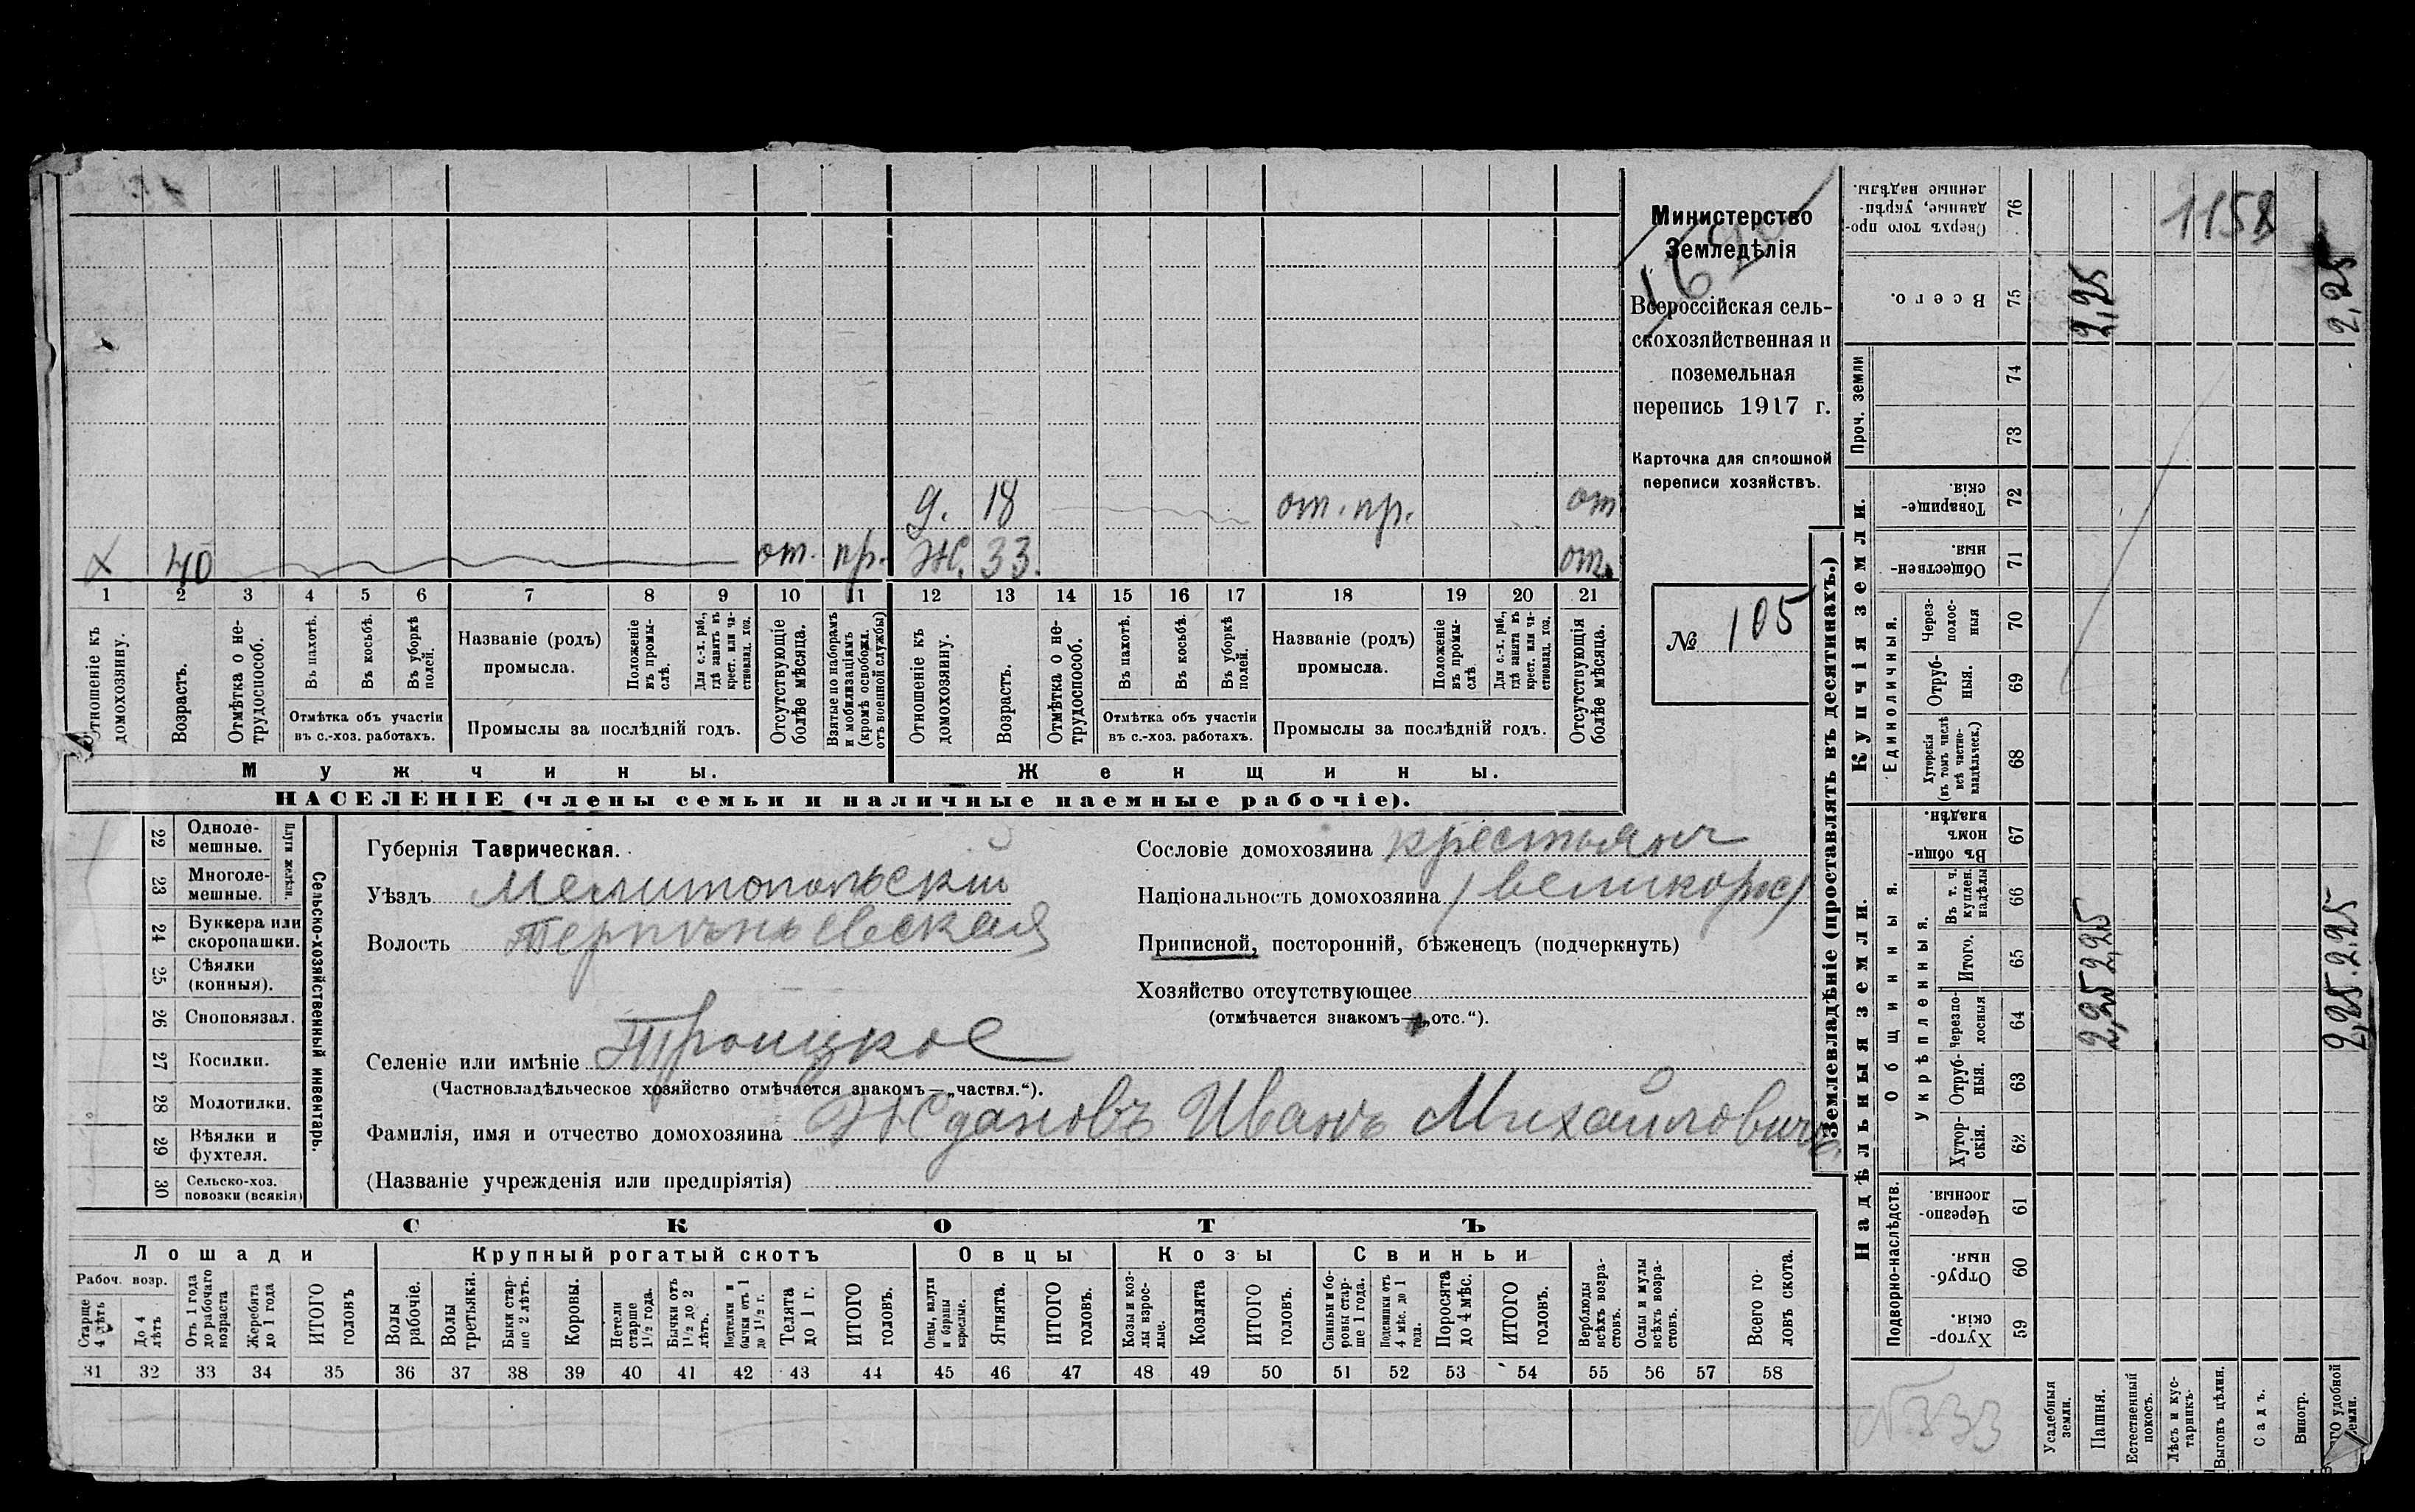 Министерство
Земледѣлія
Всероссійская сель-
скохозяйственная и
поземельная
перепись 1917 г.
Карточка для сплошной
переписи хозяйствъ.
№ 105
1158
д. 18 от. пр. от
х 40 от. пр. Ж. 33. от.
1 2 3 4 5 6 7 8 9 10 11 12 13 14 15 16 17 18 19 20 21
Отношеніе къ домохозяину.
Возрастъ.
Отмѣтка о не-трудоспособ.
Въ пахотѣ.
Въ косьбѣ.
Въ уборкѣ полей.
Отмѣтка объ участіи въ с.-хоз. работахъ.
Названіе (родъ) промысла.
Положеніе въ промы-слѣ.
Для с.-х. раб., гдѣ занятъ въ крест. или ча-стновлад. хоз.
Промыслы за послѣдній годъ.
Отсутствующіе болѣе мѣсяца.
Взятые по наборамъ и мобилизаціямъ (кромѣ освобожд. отъ военной службы)
Отношеніе къ домохозяину.
Возрастъ.
Отмѣтка о не-трудоспособ.
Въ пахотѣ.
Въ косьбѣ.
Въ уборкѣ полей.
Отмѣтка объ участіи въ с.-хоз. работахъ.
Названіе (родъ) промысла.
Положеніе въ промы-слѣ
Для с.-х. раб., гдѣ занята въ крест. или ча-стновлад. хоз.
Промыслы за послѣдній годъ.
Отсутствующія болѣе мѣсяца.
Мужчины. Женщины.
НАСЕЛЕНІЕ (члены семьи и наличные наемные рабочіе).
Сельско-хозяйственный инвентарь.
22 Одноле-мешные.
23 Многоле-мешные.
24 Буккера или скоропашки.
25 Сѣялки (конныя).
26 Сноповязал.
27 Косилки.
28 Молотилки.
29 Вѣялки и фухтеля.
30 Сельско-хоз. повозки (всякія)
Губернія Таврическая.
Уѣздъ Мелитопольскій
Волость Терпѣньевская
Селеніе или имѣніе Троицкое
(Частновладѣльческое хозяйство отмѣчается знакомъ—„частвл.“).
Фамилія, имя и отчество домохозяина Ждановъ Иванъ Михайловичъ.
(Названіе учрежденія или предпріятія)
Сословіе домохозяина крестьян
Національность домохозяина великорос
Приписной, посторонній, бѣженецъ (подчеркнуть)
Хозяйство отсутствующее
(отмѣчается знакомъ—„отс.“).
СКОТЪ
Лошади Крупный рогатый скотъ Овцы Козы Свиньи
Рабоч. возр.
Старше 4 лѣтъ
До 4 лѣтъ
Отъ 1 года до рабочаго возраста
Жеребята до 1 года
ИТОГО головъ
Волы рабочіе.
Волы третьяки.
Быки стар-ше 2 лѣтъ.
Коровы.
Нетели старше 1½ года.
Бычки отъ 1½ до 2 лѣтъ.
Нетели и бычки отъ 1 до 1½ г.
Телята до 1 г.
ИТОГО головъ.
Овцы, валухи и бараны взрослые.
Ягнята.
ИТОГО головъ.
Козы и коз-лы взрос-лые.
Козлята
ИТОГО головъ.
Свиньи и бо-ровы стар-ше 1 года.
Подсвинки отъ 4 мѣс. до 1 года.
Поросята до 4 мѣс.
ИТОГО головъ.
Верблюды всѣхъ возра-стовъ.
Ослы и мулы всѣхъ возра-стовъ.
Всего го-ловъ скота.
31 32 33 34 35 36 37 38 39 40 41 42 43 44 45 46 47 48 49 50 51 52 53 54 55 56 57 58
Землевладѣніе (проставлять въ десятинахъ.)
Купчія земли.
Надѣльныя земли.
Сверхъ того про-данные, укрѣп-ленные надѣлы. 76
Всего. 75 2,25 2,25
Проч. земли 74 73
Товарище-скія. 72
Обществен-ныя. 71
Единоличныя.
Через-полос-ныя 70
Отруб-ныя. 69
Хуторскія (въ томъ числѣ всѣ частно-владѣльческ.) 68
Общинныя.
Въ общи-номъ владѣн. 67
Укрѣпленныя.
Въ т. ч. куплен. надѣлы 66
Итого. 65 2,25 2.25
Черезпо-лосныя 64 2,25 2,25.
Отруб-ныя. 63
Хутор-скія. 62
Подворно-наслѣдств.
Черезпо-лосныя. 61
Отруб-ныя. 60
Хутор-скія. 59
Усадебныя земли.
Пашня.
Естественный покосъ.
Лѣсъ и кус-тарникъ.
Выгонъ цѣлин.
Садъ.
Виногр.
удобной земли.
№333